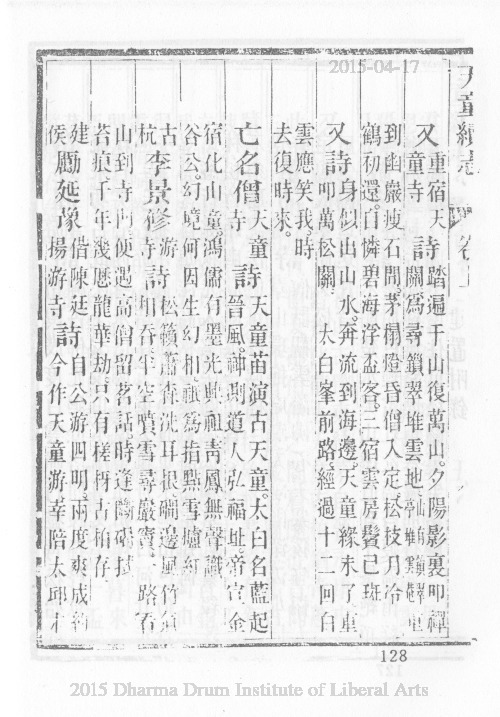 2015-04-17
天童續志 卷上
又重宿天童寺詩踏遍千山復萬山。夕陽影裏叩禪
關。爲尋鎖翠堆雲地
到幽巖瘦石間。茅榻燈昏僧入定。松枝月冷
鶴初還。自憐碧海浮盃客。三宿雲房鬢已班
又詩身似出山水。奔流到海邊。天童緣未了。重
叩萬松關 太白峯前路。經過十二回。白
雲應笑我。時
去復時來。
亡名僧天童寺詩天童苗演古天童。太白名藍起
晉風。神測道人弘福址。帝官金
宿化山童。鴻儒有墨光興祖。靑鳳無聲識
谷公。幻境何因生幻相。祖爲指點雪爐紅
李景修游古杭寺詩松籟蕭森洗耳根。礀邊風竹
相吞。半空噴雪尋巖竇。一路看
山到寺門。便遇高僧留茗話。時逢斷碣拭
苔痕。千年幾歷龍華劫。只有楂枒古柏存
勵延豫偕陳廷揚游寺詩自公游四明。兩度爽成約
今作天童游。幸陪太邱才
建侯
128
2015 Dharma Drum Institute of Liberal Arts